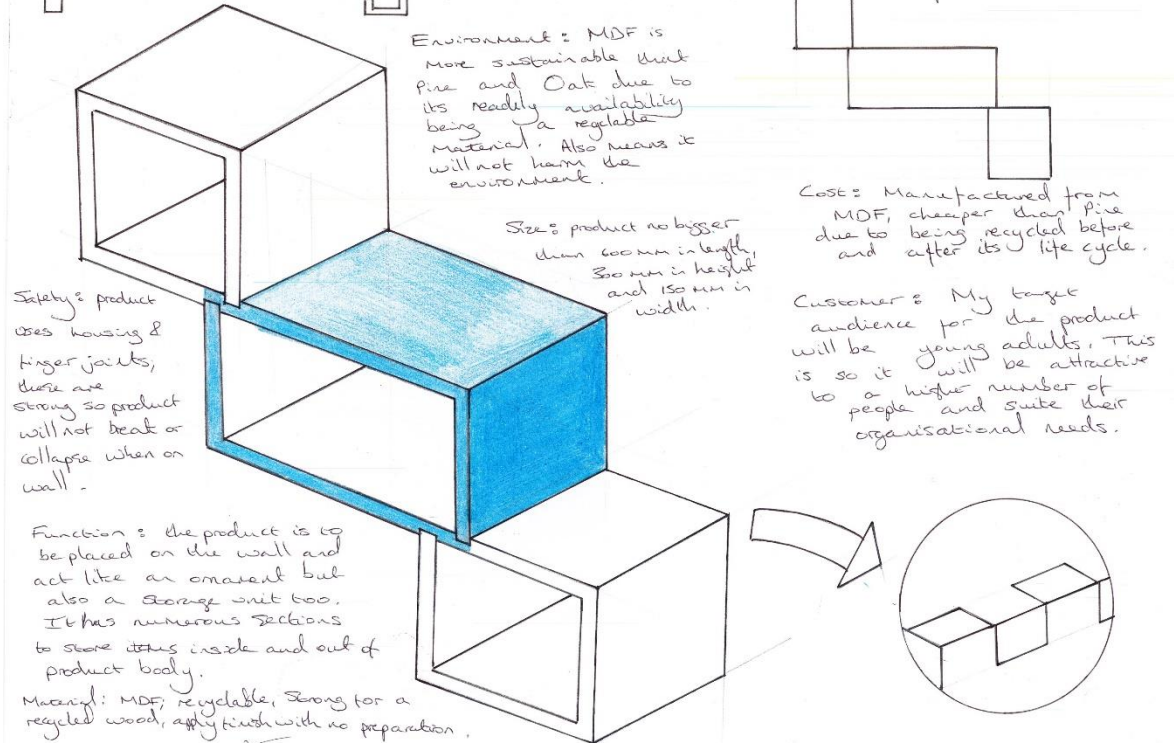 Environment : MDF is
more sustainable that
Pine and Oak due to
its readily availability
being a recyclable
Material. Also means it
will not harm the
environment.
Size : product no bigger
than 600mm in length,
300mm in height
and 150mm in
width.
Cost : Manufactured from
MDF, cheaper than Pine
due to being recycled before
and after its life cycle.
Customer : My target
audience for the product
will be young adults. This
is so it will be attractive
to a higher number of
people and suite their
organisational needs.
Safety : product
uses housing &
finger joints,
these are
strong so product
will not break or
collapse when on
wall.
Function : the product is to
be placed on the wall and
act like an ornament but
also a storage unit too.
It has numerous sections
to store items inside and out of
product body.
Material : MDF, recyclable, strong for a
recycled wood, apply finish with no preparation.